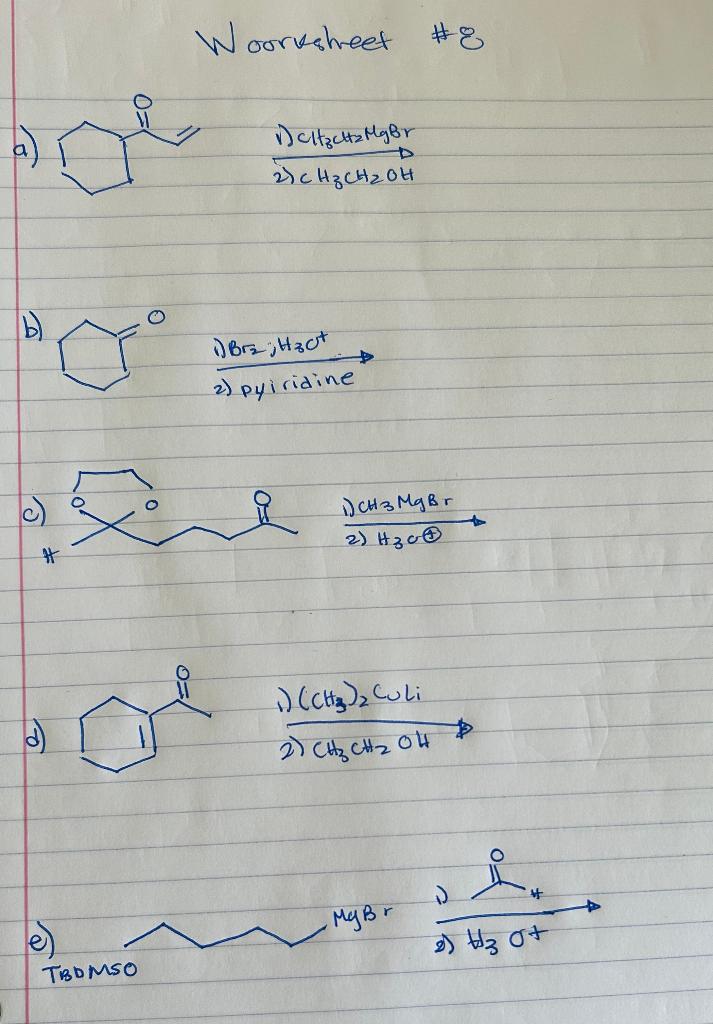 Woorksheet #8
a)
O
1) CH3CH2MgBr
2) CH3CH2OH
b)
O
1) Br2 ; H3O+
2) pyiridine
c)
O O
H
O
1) CH3MgBr
2) H3O⊕
d)
O
1) (CH3)2 CuLi
2) CH3CH2 OH
e)
TBDMSO
MgBr
1)
O
H
2) H3O+